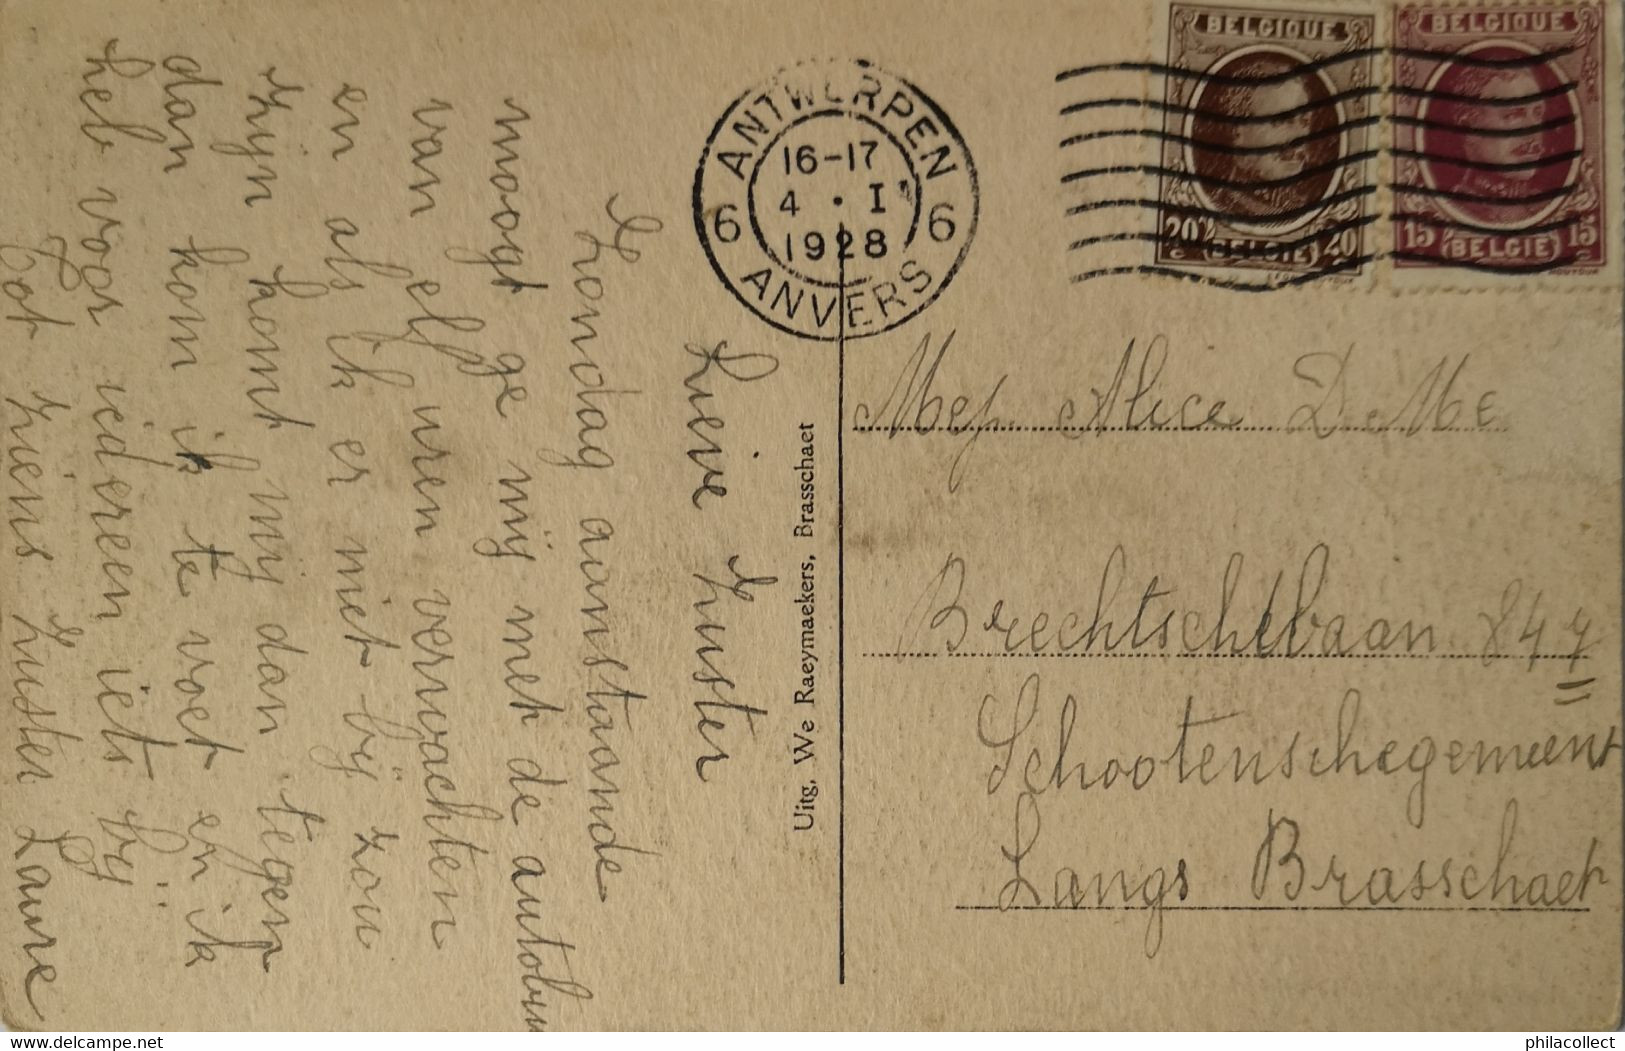 BELGIQUE
20 C
20 C
BELGIË
BELGIQUE
15 C
15 C
BELGIË
HOUYOUX
ANTWERPEN
16-17
4 · I
1928
6 6
ANVERS
Lieve Zuster
Zondag aanstaande
moogt ge mij met de autobus
van elf uren verwachten
en als ik er niet bij zou
zijn komt mij dan tegen
dan kom ik te voet en ik
heb voor iedereen iets bij
Tot ziens Zuster Laure
Uitg. We Raeymaekers, Brasschaet
Mej. Alice De Me
Brechtschebaan 847
Schootenschegemeent
Langs Brasschaet
www.delcampe.net
philacollect